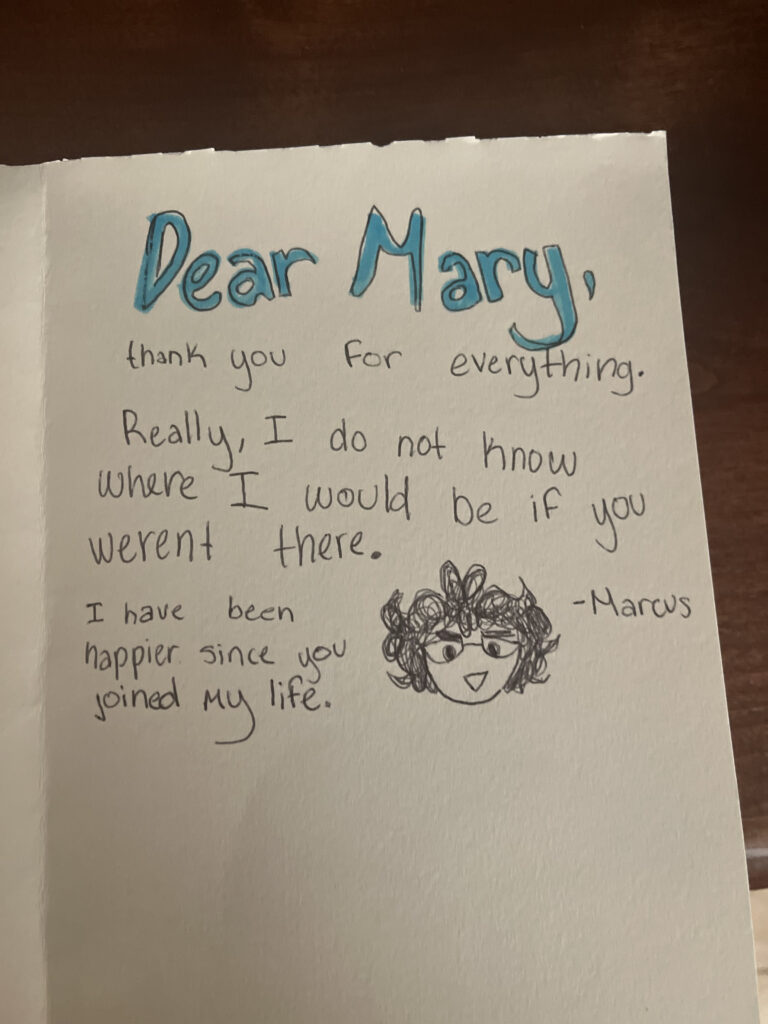 Dear Mary,
thank you for everything.
Really, I do not know
where I would be if you
werent there.
I have been
happier since you
joined my life.
-Marcus